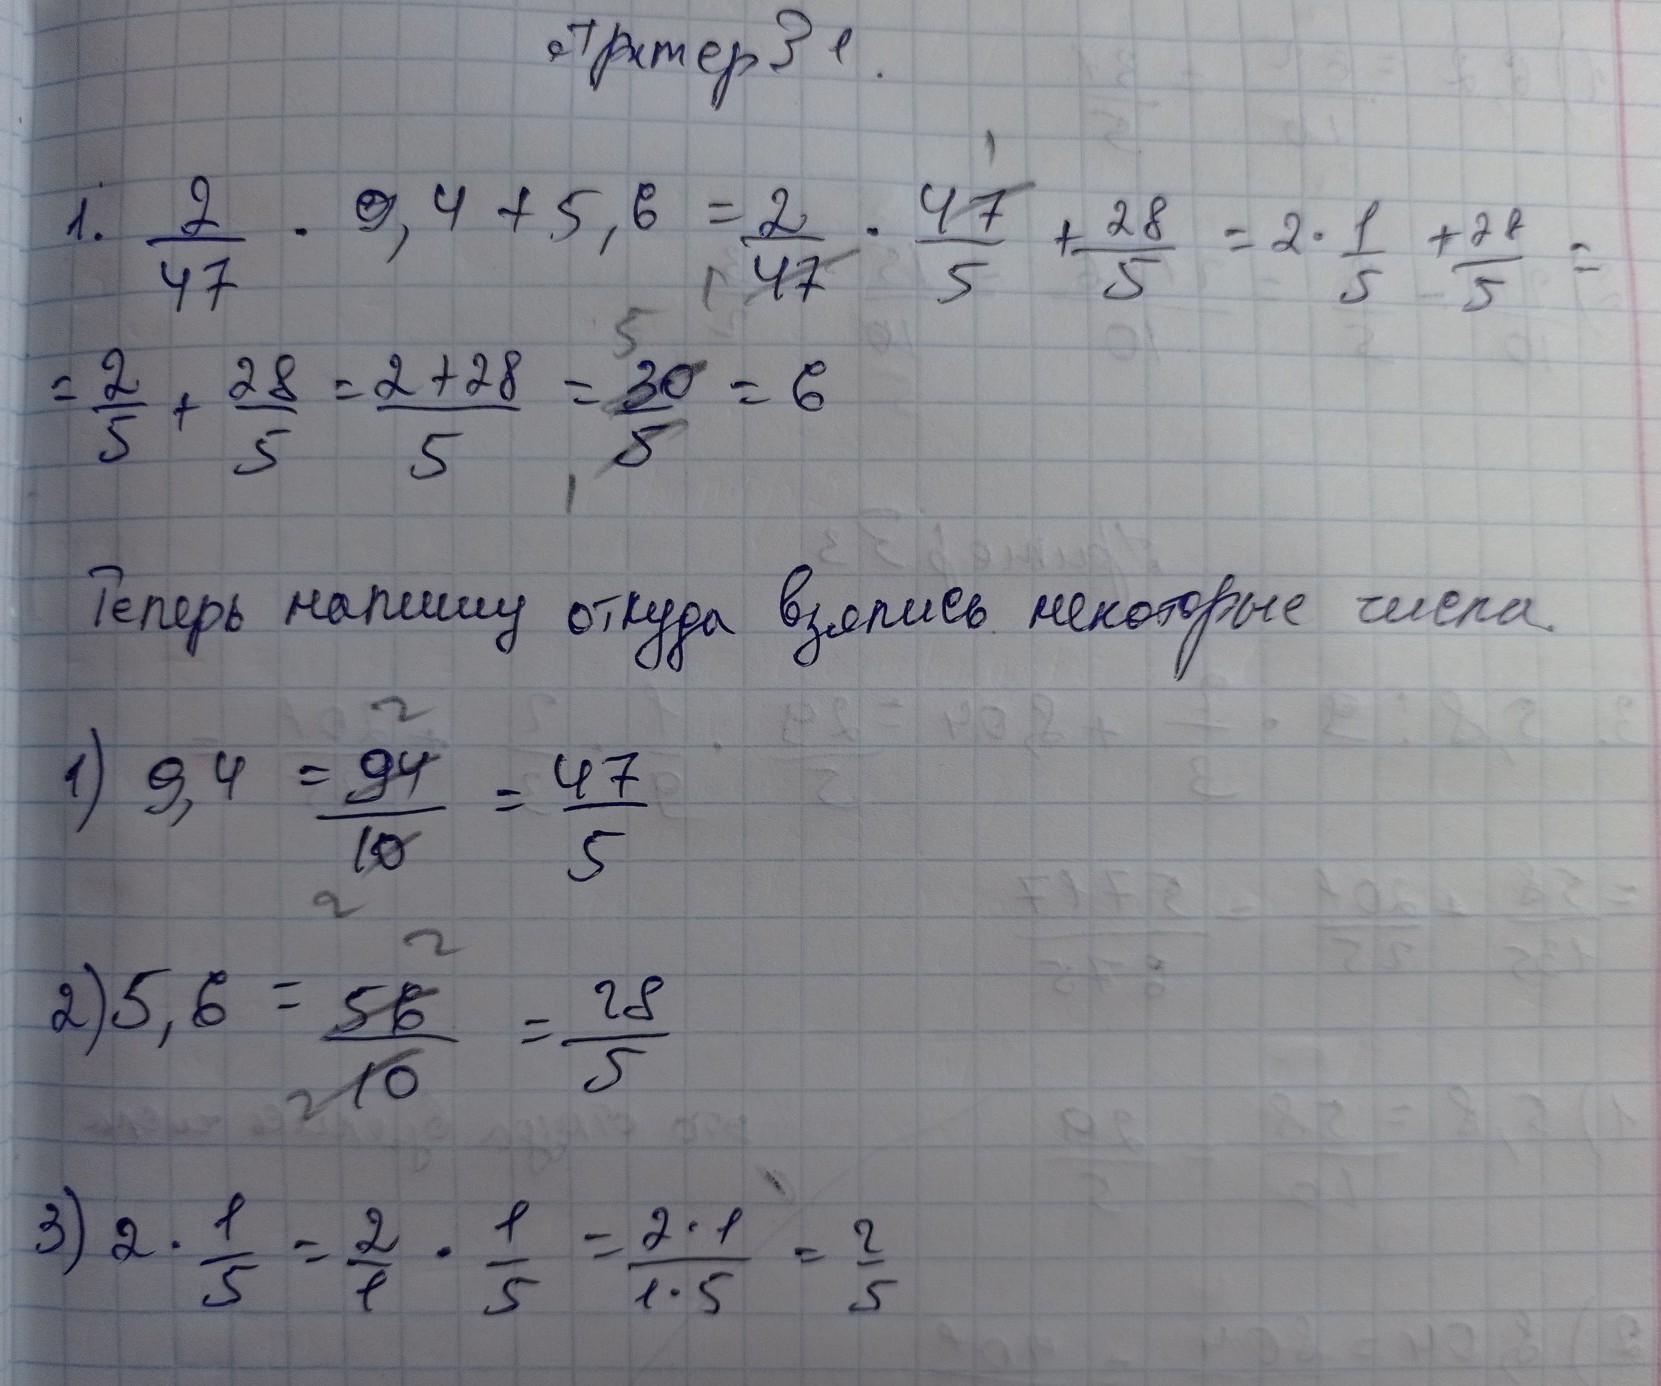 Пример 31.
1. 2/47 · 9,4 + 5,6 = 2/47 · 47/5 + 28/5 = 2 · 1/5 + 28/5 =
= 2/5 + 28/5 = 2+28/5 = 30/5 = 6
Теперь напишу откуда взялись некоторые числа.
1) 9,4 = 94/10 = 47/5
2) 5,6 = 56/10 = 28/5
3) 2 · 1/5 = 2/1 · 1/5 = 2·1/1·5 = 2/5